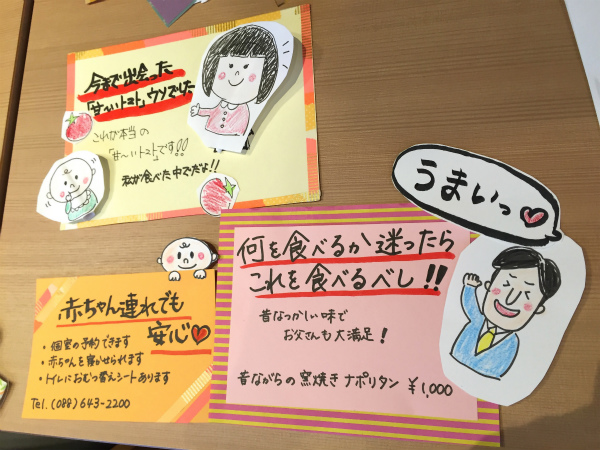 今まで出会った
「甘〜いトマト」ウソでした
これが本当の
「甘〜いトマト」です!!
私が食べた中でだよ!!
うまいっ
何を食べるか迷ったら
これを食べるべし!!
昔なつかしい味で
お父さんも大満足!
昔ながらの窯焼きナポリタン ¥1,000
赤ちゃん連れでも
安心
・個室の予約できます
・赤ちゃんを寝かせられます
・トイレにおむつ替えシートあります
Tel. (088) 643-2200